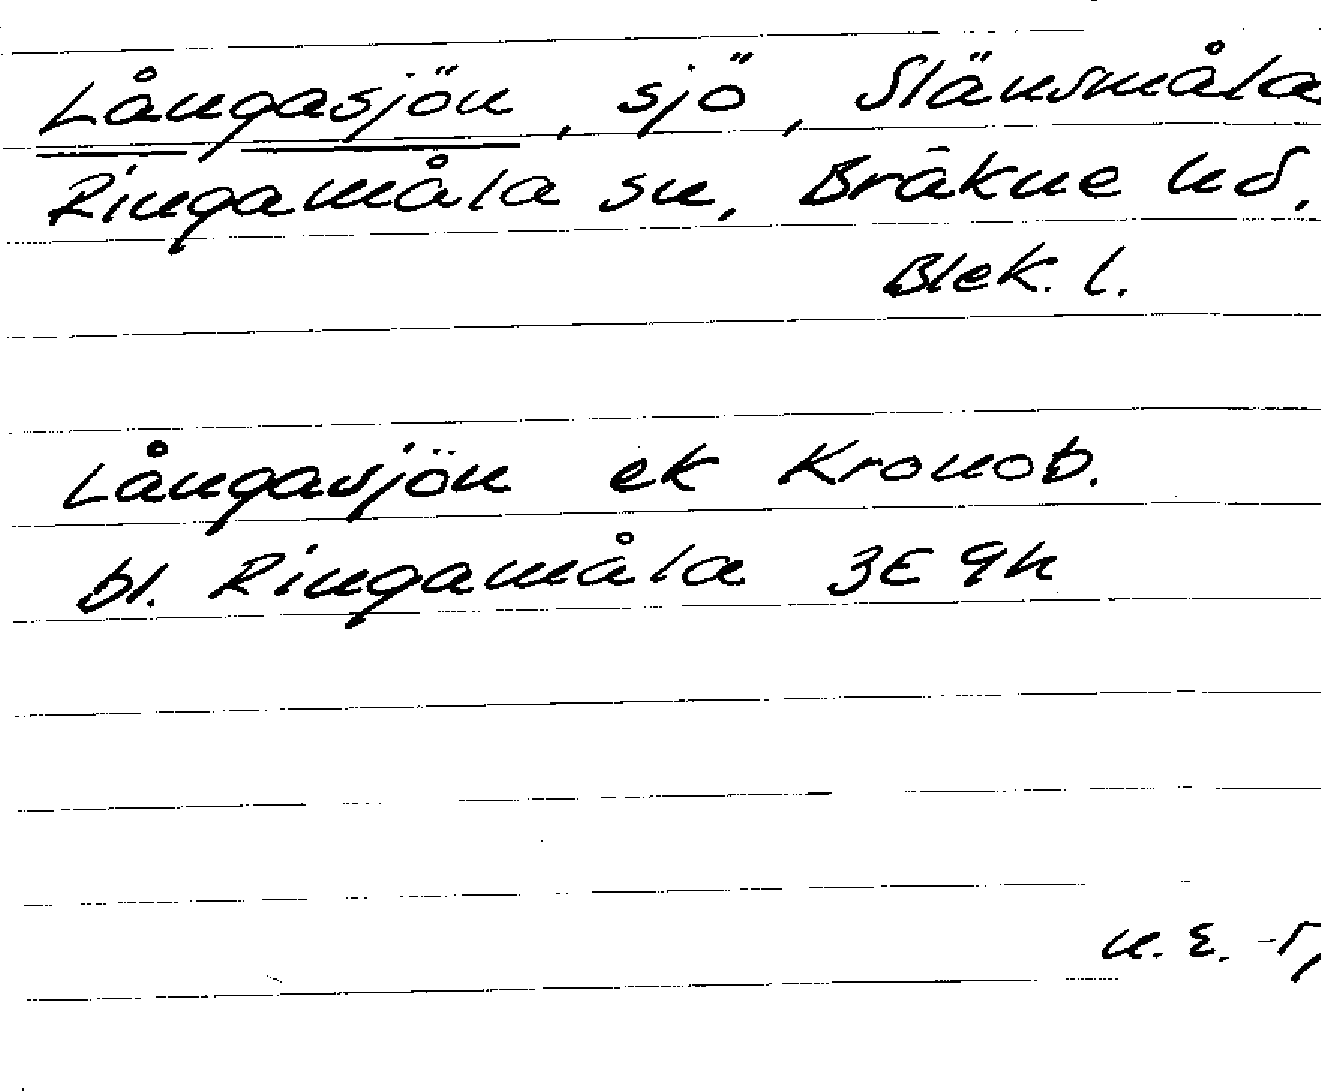 Långasjön, sjö, Slänsmåla
Ringamåla sn, Bräkne hd,
Blek. l.
Långasjön ek Kronob.
bl. Ringamåla 3E 9h